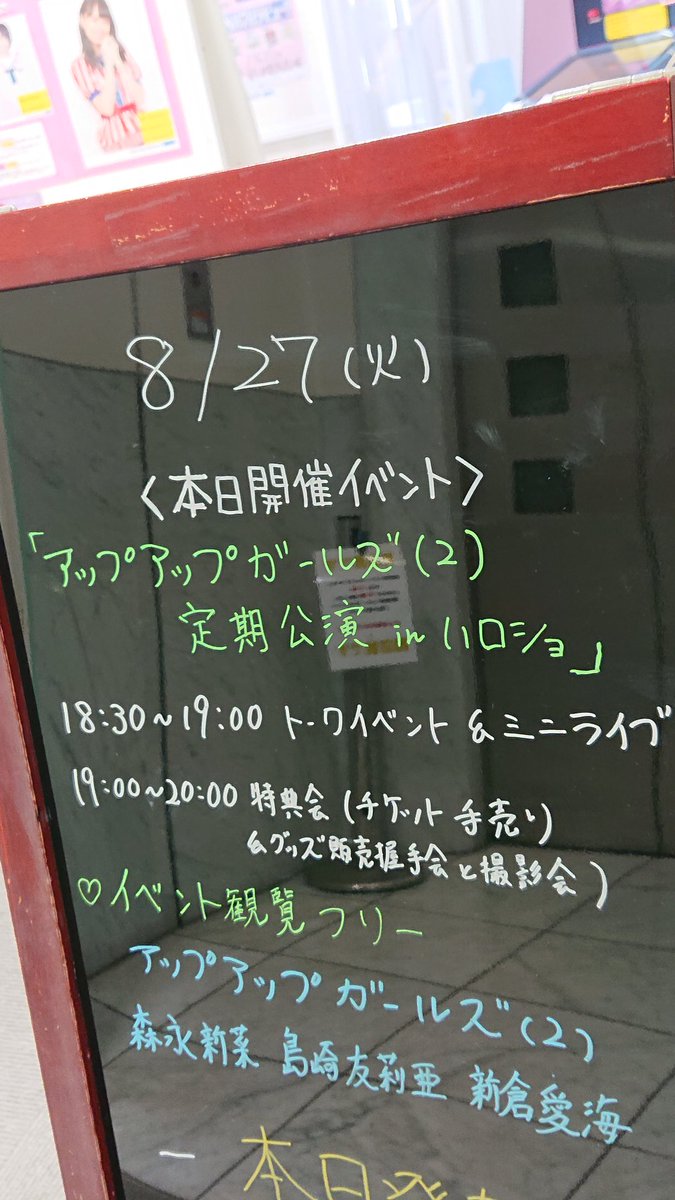 8/27(火)
<本日開催イベント>
「アップアップガールズ(2)
定期公演 in ハロショ」
18:30~19:00 トークイベント & ミニライブ
19:00~20:00 特典会(チケット手売り
&グッズ販売握手会と撮影会)
♡イベント観覧フリー
アップアップガールズ(2)
森永新菜 島崎友莉亜 新倉愛海
本日発